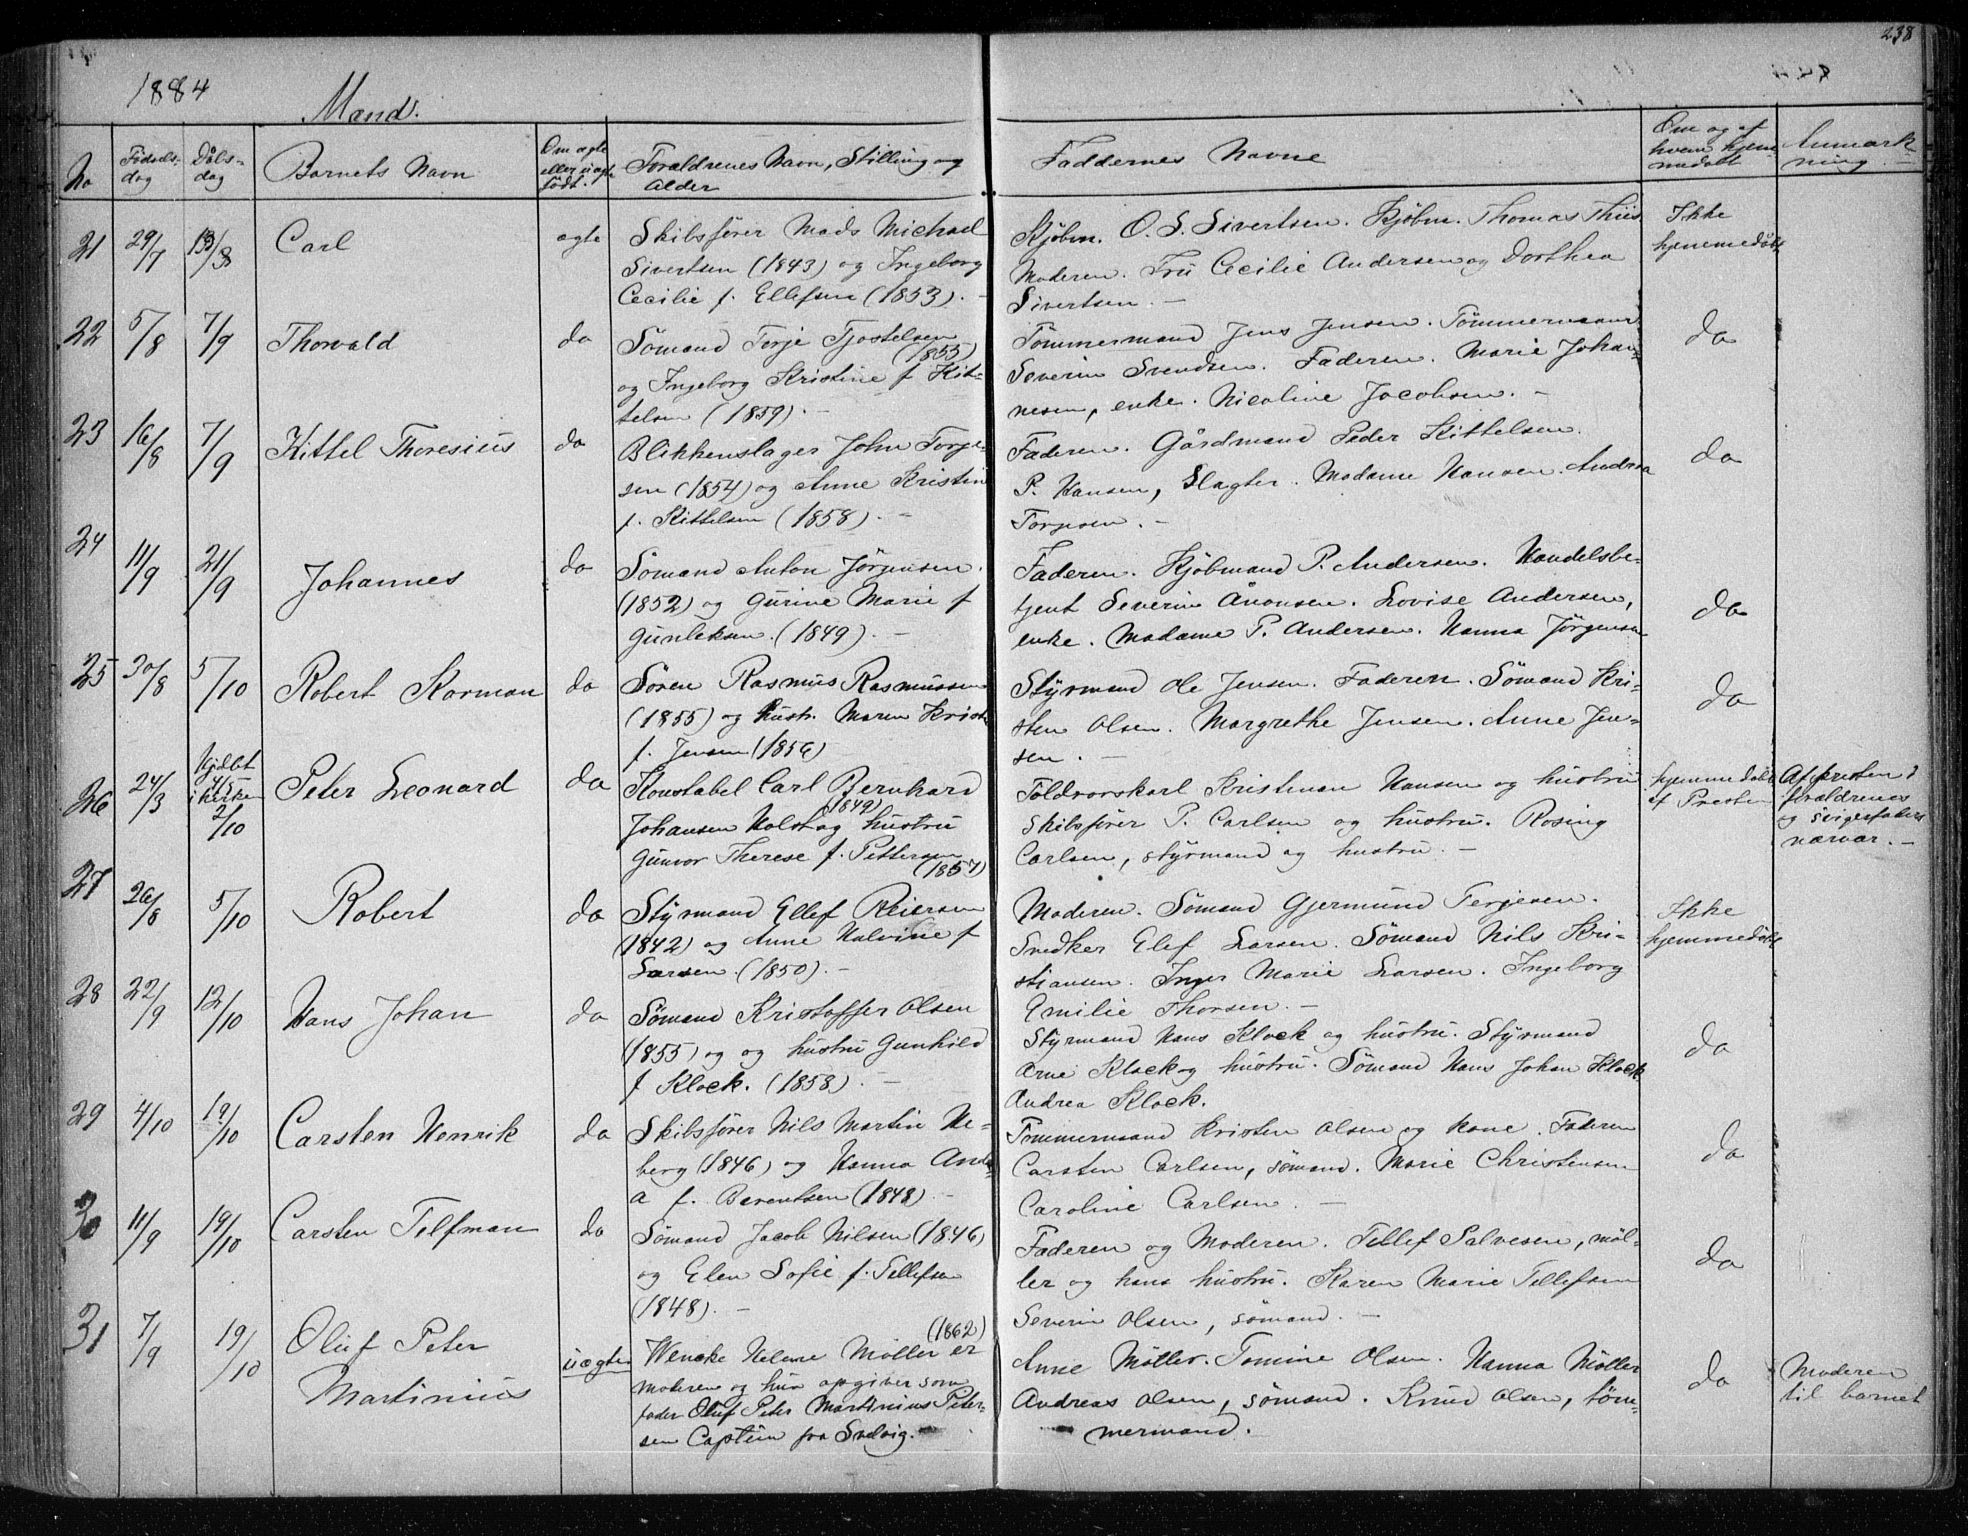 238
1884
Mænd.
No
Födsels-
dag
Dåbs-
dag
Barnets Navn
Om ægte
eller uægte
født.
Forældrenes Navn, Stilling og
Alder
Faddernes Navne
Om og af
hvem hjem-
medøbt
Anmærk-
ning.
21 29/7 /8 Carl ægte
Skibsfører Mads Michael
Sivertsen (1843) og Ingeborg
Cecilie f. Ellefsen (1853). -
Kjøbm. O. S. Sivertsen. Kjøbm. Thomas Thiis
Moderen. Frú Cecilie Andersen og Dorthea
Sivertsen. -
Ikke
hjemmedøbt
22 5/8 7/9 Thorvald do
Sømand Terje Tjostelsen
(1855)
og Ingeborg Kristine f Kit-
telsen (1859). -
Tømmermand Jens Jensen. Tømmermand
Severin Svendsen. Faderen. Marie Johan-
nesen, enke. Nicoline Jacobsen. -
do
23 16/8 7/9 Kittel Thoresius do
Blikkenslager John Torge-
sen (1854) og Anne Kristin
f. Kittelsen (1858). -
Faderen. Gårdmand Peder Kittelsen.
P. Hansen, Slagter. Madame Hansen. Andrea
Torgesen. -
do
24 11/9 21/9 Johannes do
Sømand Anton Jørgensen.
(1852) og Gurine Marie f
Gunleksen. (1849). -
Faderen. Kjøbmand P. Andersen. Handelsbe-
tjent Severin Åvonsen. Lovise Andersen,
enke. Madame P. Andersen. Hanna Jørgensen
do
25 30/8 5/10 Robert Korman do
Søren Rasmus Rasmussen
(1855) og hustr. Maren Krist.
f. Jensen (1856)
Styrmand Ole Jensen. Faderen. Sømand Kri-
sten Olsen. Margrethe Jensen. Anne Jen-
sen. -
do
26 24/3 Hjdbt
4/5
i kirken
2/10
Peter Leonard do
Konstabel Carl Bernhard
(1849)
Johansen Holst og hustru
Gunvor Therese f. Pettersen
(1857)
Toldrorskarl Kristman Hansen og hustru
Skibsfører P. Carlsen og hustru. Rosing
Carlsen, styrmand og hustru. -
hjemmedøbt
af Presten
Af Presten i
forældrenes
og svigerfaders
nærvær. -
27 26/8 5/10 Robert do
Styrmand Ellef Reiersen
(1842) og Anne Halvine f
Larsen (1850). -
Moderen. Sømand Gjermund Terjesen.
Snedker Elef Larsen. Sømand Nils Kri-
stiansen. Inger Marie Larsen. Ingeborg
Emilie Thorsen. -
Ikke
hjemmedøbt
28 22/9 12/10 Hans Johan do
Sømand Kristoffer Olsen
(1855) og og hustru Gunhild
f Klock. (1858). -
Styrmand Hans Klock og hustru. Styrmand
Arne Klock og hustru. Sømand Hans Johan Klock
Andrea Klock.
do
29 4/10 19/10 Carsten Henrik do
Skibsfører Nils Martin He-
berg (1846) og Hanna Andre
a f. Berentsen (1848). -
Tømmermand Kristen Olsen og kone. Faderen
Carsten Carlsen, sømand. Marie Christensen
Caroline Carlsen. -
do
30 11/9 19/10 Carsten Telfman do
Sømand Jacob Nilsen (1846)
og Elen Sofie f. Tellefsen
(1848). -
Faderen og Moderen. Tellef Salvesen, møl-
ler og hans hustru. Karen Marie Tellefsen
Severin Olsen, sømand. -
do
31 7/9 19/10 Oluf Peter
Martinius
uægte
(1862)
Wencke Helene Møller er
moderen og hun opgiver som
fader Oluf Peter Martinius Peter-
sen Captein fra Svelvig.
Anne Møller. Tomine Olsen. Hanna Møller
Andreas Olsen, sømand. Knud Olsen, tøm-
mermand.
do
Moderen
til barnet